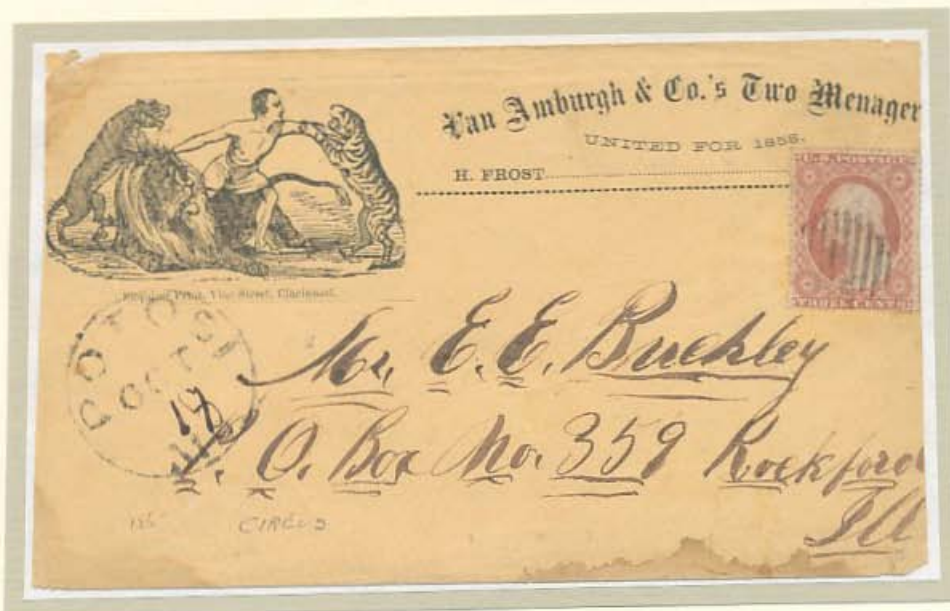 Van Amburgh & Co.'s Two Menager
UNITED FOR 1858.
H. FROST
U.S. POSTAGE
THREE CENTS
Print, Vine Street, Cincinnati.
OCT
19
Mr. E. E. Buckley
P. O. Box No. 359 Rockford
Ill
CIRCUS